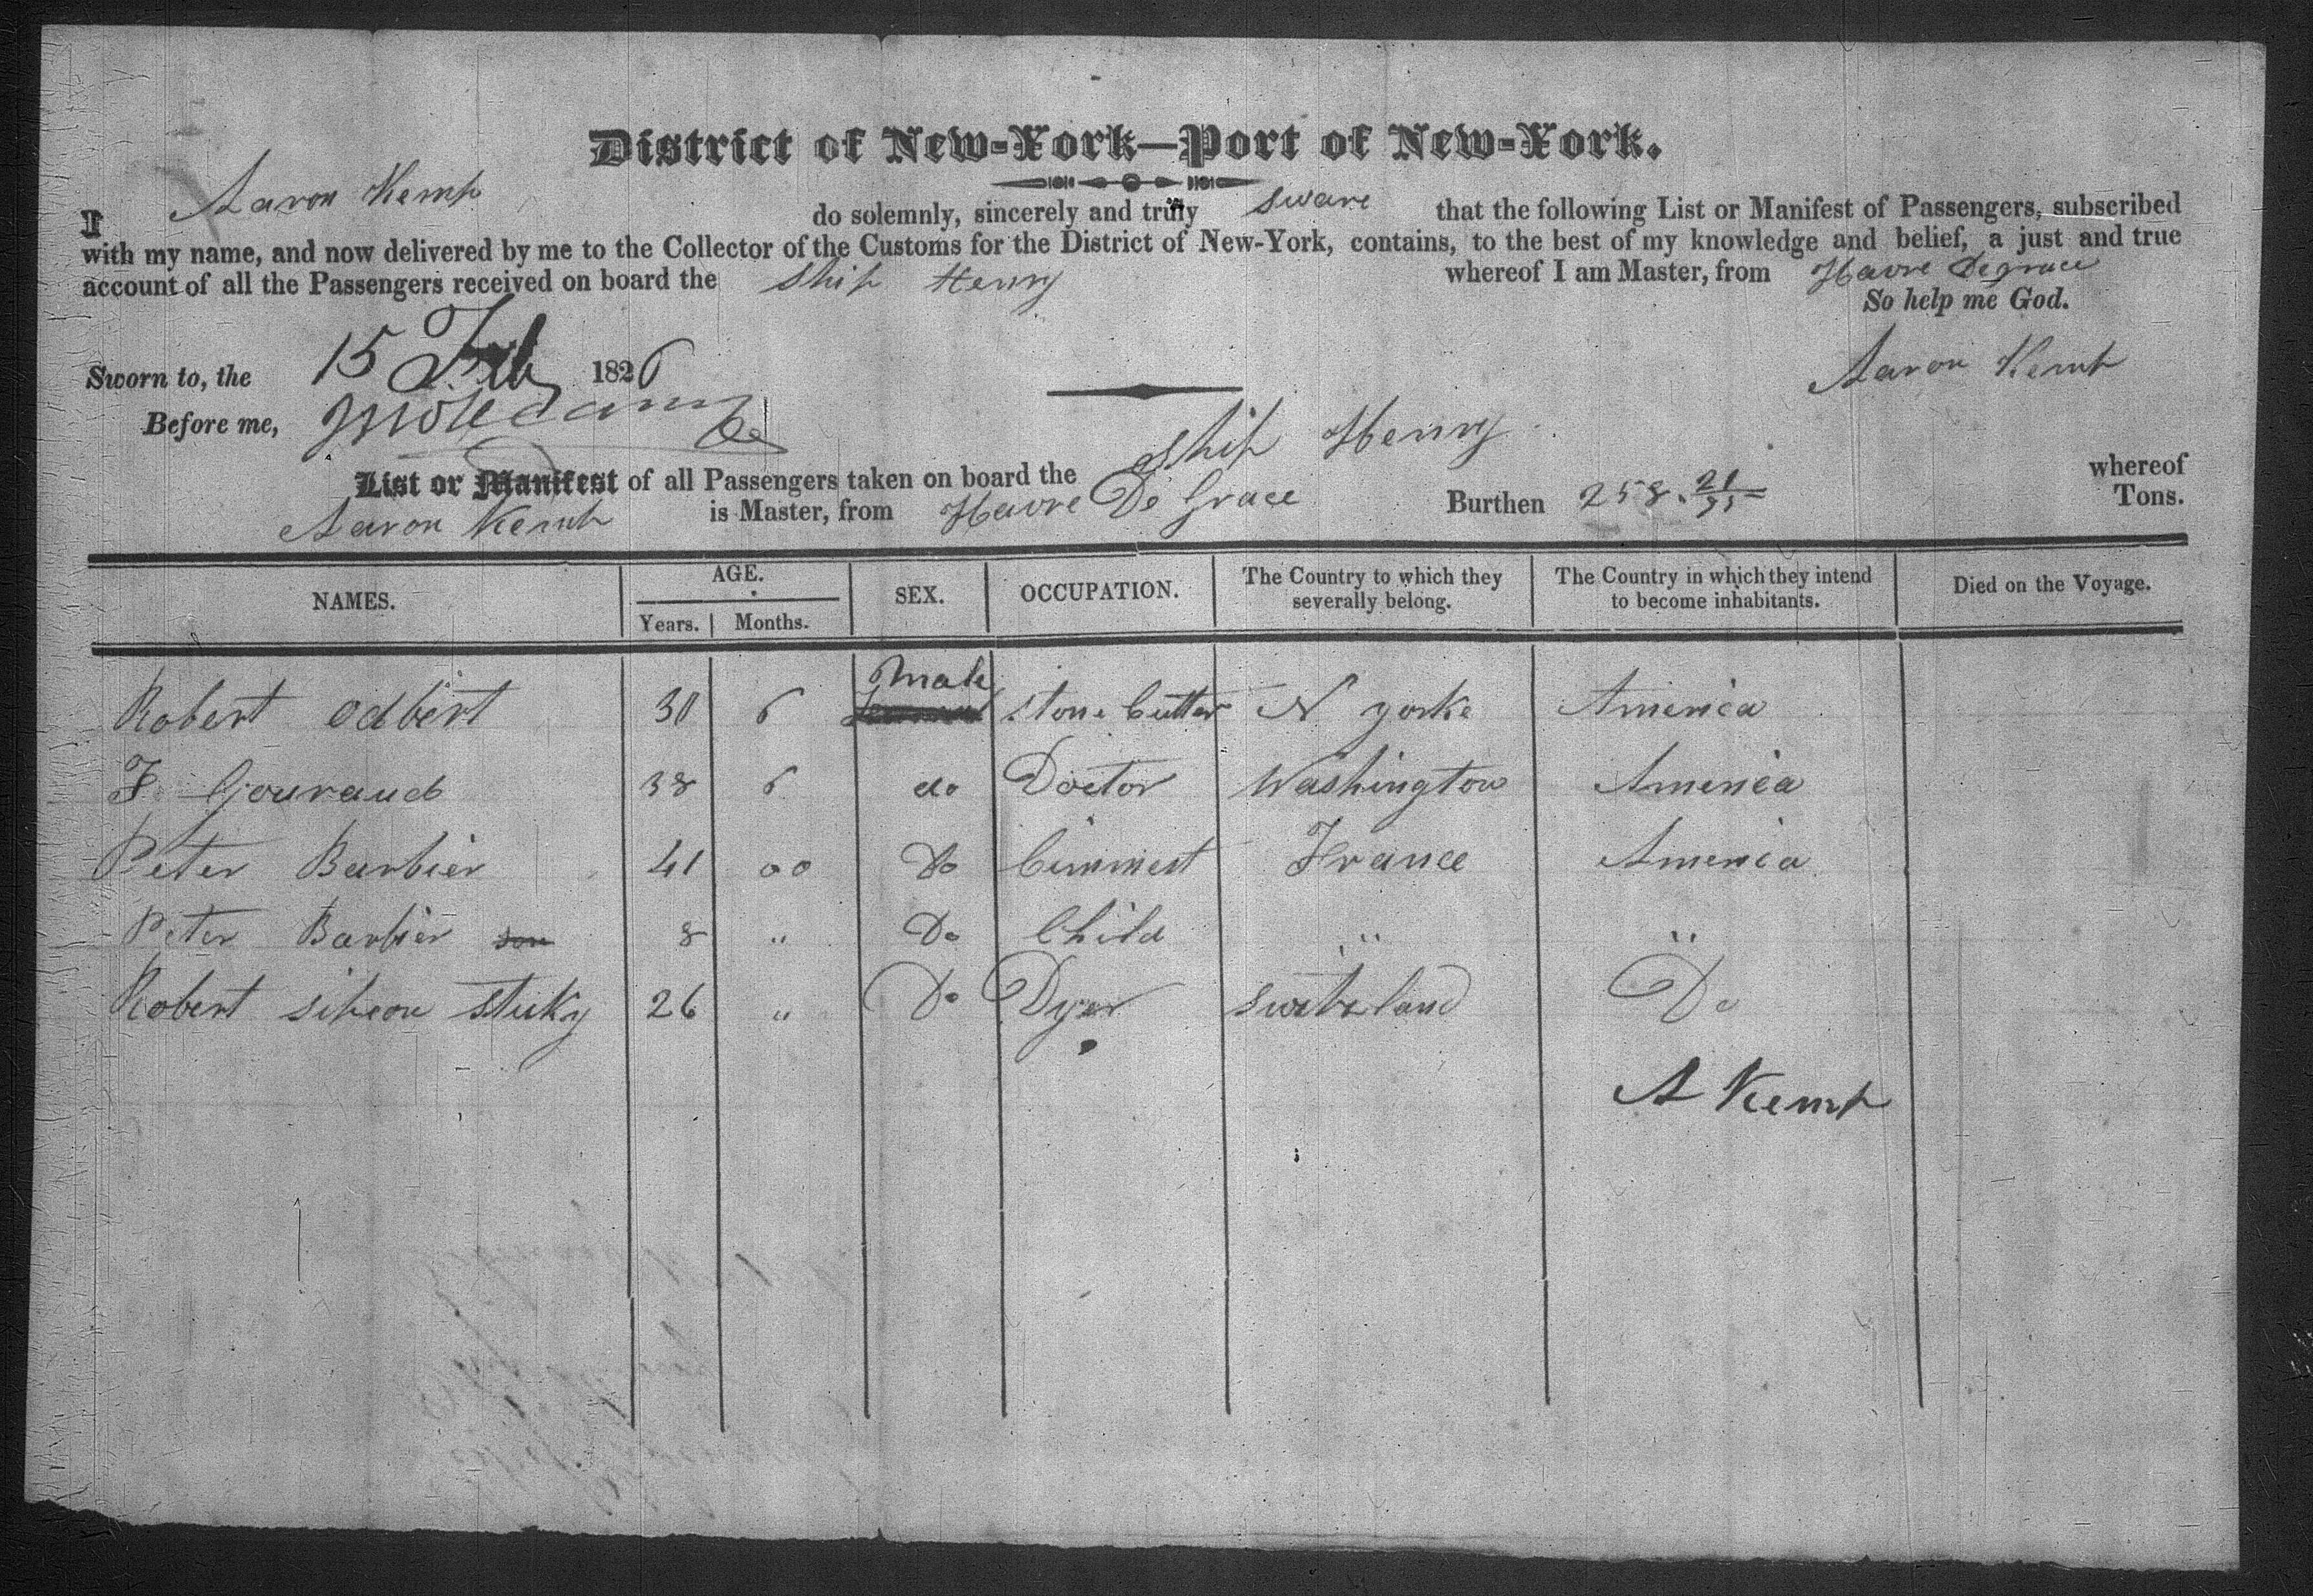 District of New-York—Port of New-York.
I Aaron Kemp do solemnly, sincerely and truly sware that the following List or Manifest of Passengers, subscribed
with my name, and now delivered by me to the Collector of the Customs for the District of New-York, contains, to the best of my knowledge and belief, a just and true
account of all the Passengers received on board the Ship Henry whereof I am Master, from Havre Degrace
So help me God.
Sworn to, the 15 Feb 1826 Aaron Kemp
Before me,
List or Manifest of all Passengers taken on board the Ship Henry whereof
Aaron Kemp is Master, from Havre De Grace Burthen 258. Tons.
NAMES. AGE. SEX. OCCUPATION. The Country to which they severally belong. The Country in which they intend to become inhabitants. Died on the Voyage.
Years. Months.
Male
Robert Odbert 30 6 Stone Cutter N yorke America
F Gouraud 38 6 do Doctor Washington America
Peter Barbier 41 00 Do France America
Peter Barbier son 8 " Do Child " "
Robert sipeon stuky 26 " Do Dyer Switzland Do
A Kemp